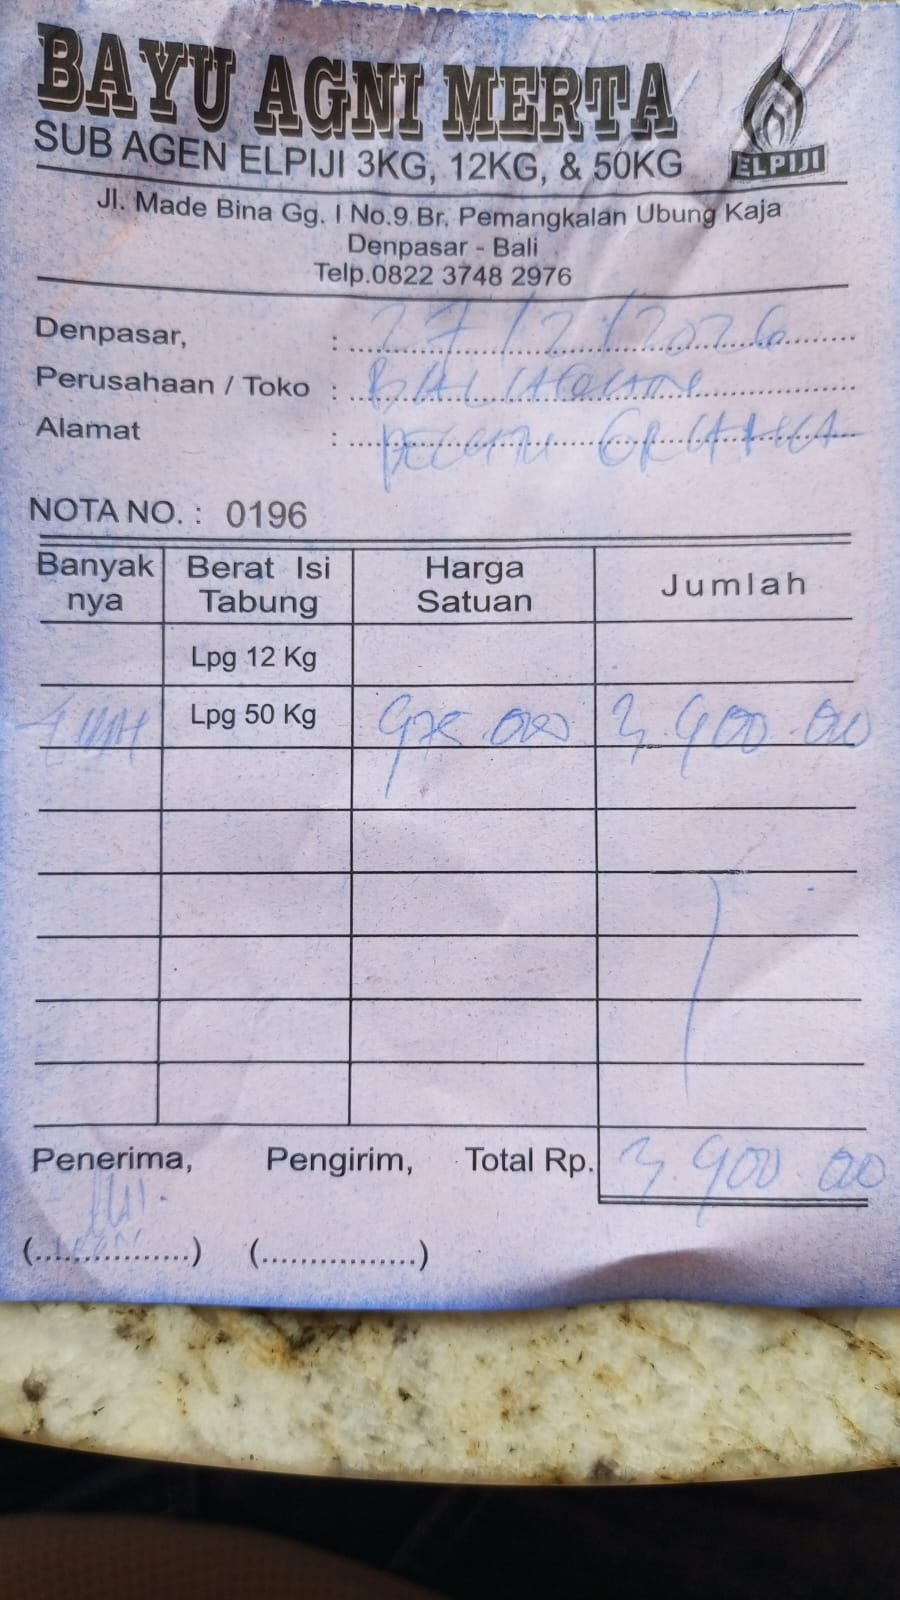 BAYU AGNI MERTA
SUB AGEN ELPIJI 3KG, 12KG, & 50KG
ELPIJI
Jl. Made Bina Gg. I No.9 Br. Pemangkalan Ubung Kaja
Denpasar - Bali
Telp.0822 3748 2976
Denpasar, : 27/2/2026
Perusahaan / Toko :
Alamat :
NOTA NO. : 0196
Banyak nya Berat Isi Tabung Harga Satuan Jumlah
Lpg 12 Kg
Lpg 50 Kg 975.000 3,900.00
Penerima, Pengirim, Total Rp. 3,900.00
(................) (................)